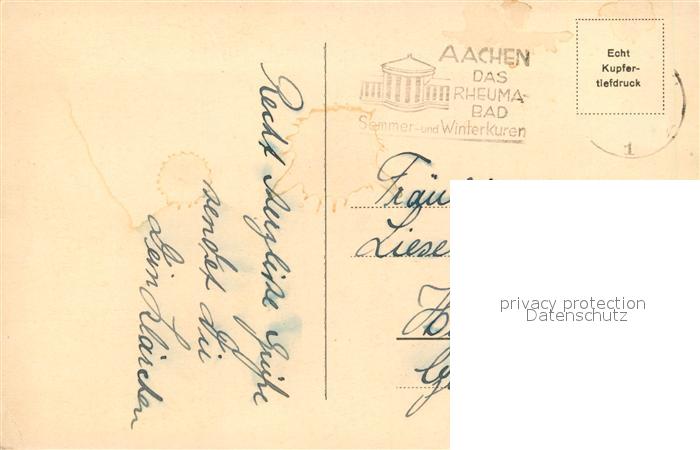 AACHEN
DAS
RHEUMA-
BAD
Sommer- und Winterkuren
Echt
Kupfer-
tiefdruck
1
Recht herzliche Grüße
sendet dir
Dein Klärchen
Fräul
Liese
H
G
privacy protection
Datenschutz